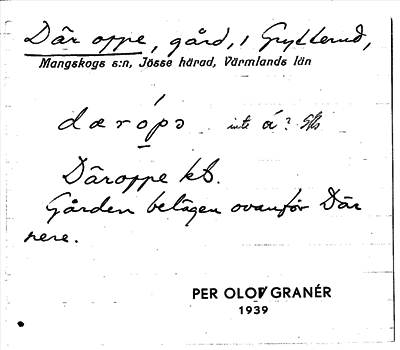 Där oppe, gård, i Grytterud,
Mangskogs s:n, Jösse härad, Värmlands län
dærópə inte á? Sks
Däroppe kb.
Gården belägen ovanför Där
nere.
PER OLOF GRANÉR
1939